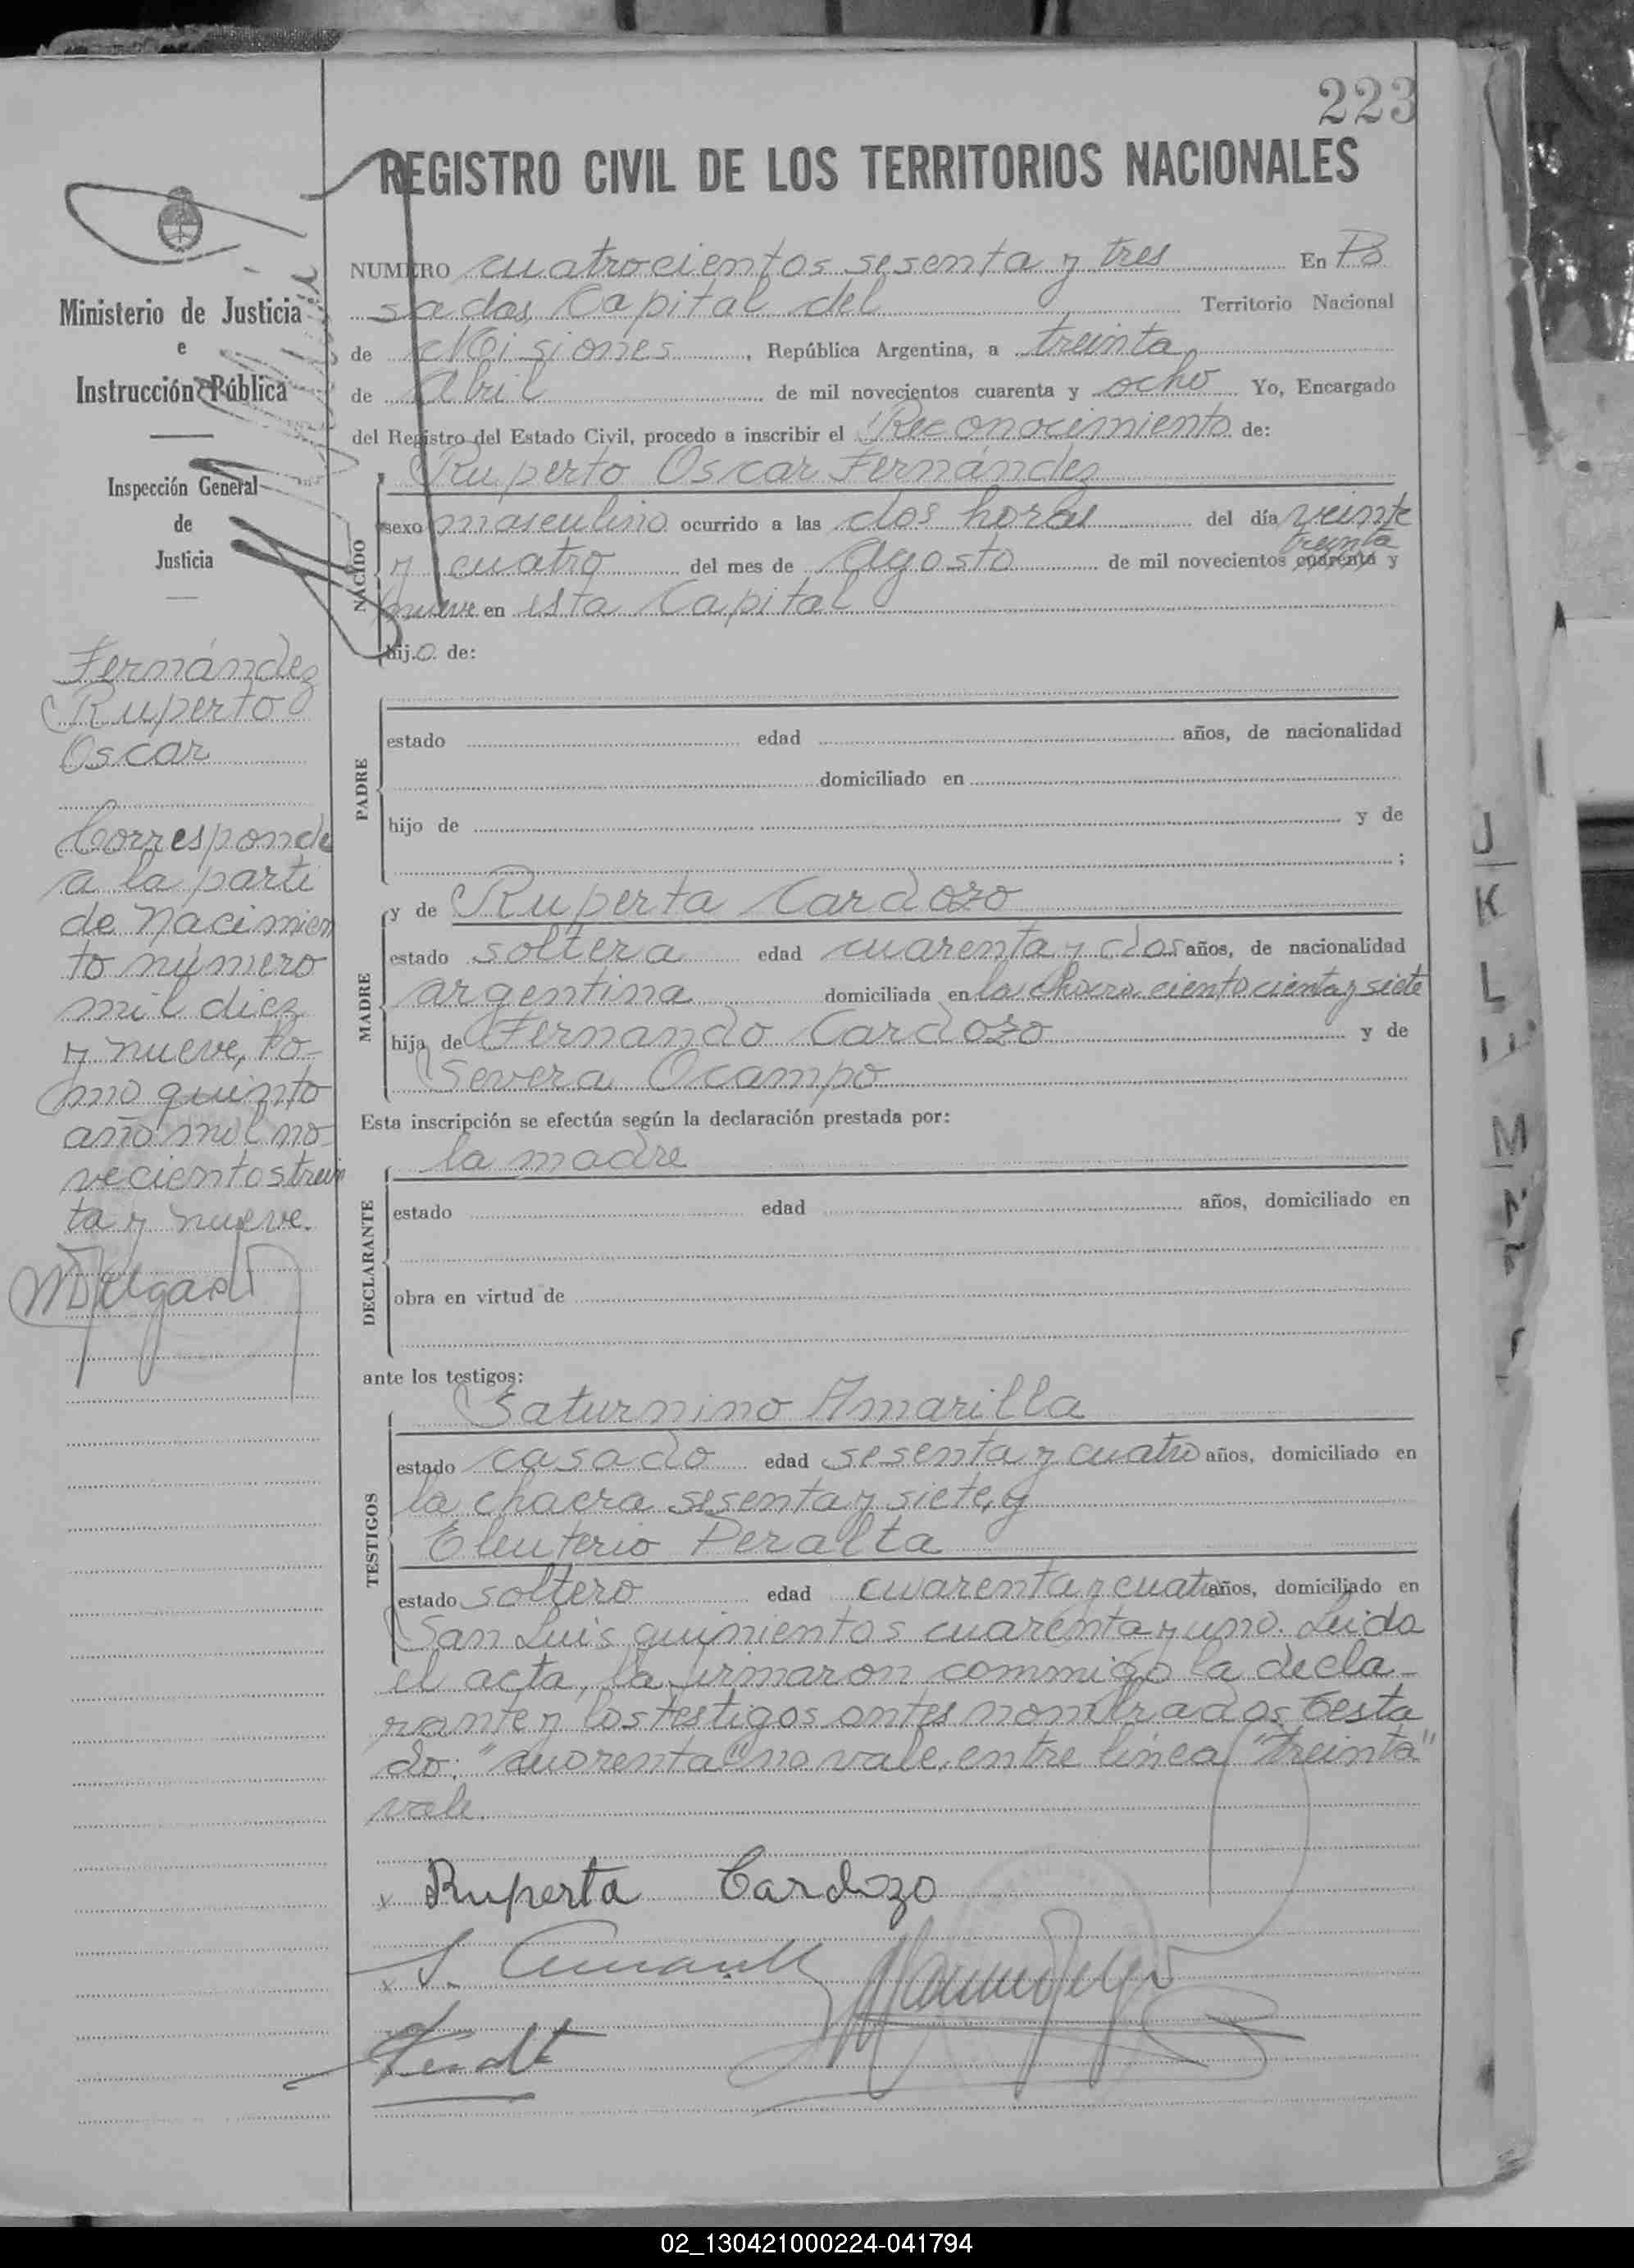 223
REGISTRO CIVIL DE LOS TERRITORIOS NACIONALES
Ministerio de Justicia
e
Instrucción Pública
Inspección General
de
Justicia
Fernández
Ruperto
Oscar
Corresponde
a la parti
de nacimien
to número
mil diez
y nueve, To-
mo quinto
año mil no
vecientos trein
ta y nueve.
NUMERO cuatrocientos sesenta y tres En Po
sadas, Capital del Territorio Nacional
de Misiones, República Argentina, a treinta
de Abril de mil novecientos cuarenta y ocho Yo, Encargado
del Registro del Estado Civil, procedo a inscribir el Reconocimiento de:
Ruperto Oscar Fernández
NACIDO
sexo masculino ocurrido a las dos horas del día veinte
treinta
y cuatro del mes de Agosto de mil novecientos cuarenta y
nueve en esta Capital
hijo de:
PADRE
estado edad años, de nacionalidad
domiciliado en
hijo de y de
;
MADRE
y de Ruperta Cardozo
estado soltera edad cuarenta y dos años, de nacionalidad
argentina domiciliada en la chacra ciento y siete
hija de Fernando Cardozo y de
Severa Ocampo
Esta inscripción se efectúa según la declaración prestada por:
la madre
DECLARANTE
estado edad años, domiciliado en
obra en virtud de
ante los testigos:
Saturnino Amarilla
TESTIGOS
estado casado edad sesenta y cuatro años, domiciliado en
la chacra sesenta y siete, y
Eleuterio Peralta
estado soltero edad cuarenta y cuatro años, domiciliado en
San Luis quinientos cuarenta y uno. Leida
el acta, la firmaron commigo la decla-
rante y los testigos antes nombrados Testa
do: "cuarenta" no vale, entre línea "treinta"
vale.
x Ruperta Cardozo
x S. Amarilla
J
K
L
M
N
02_130421000224-041794